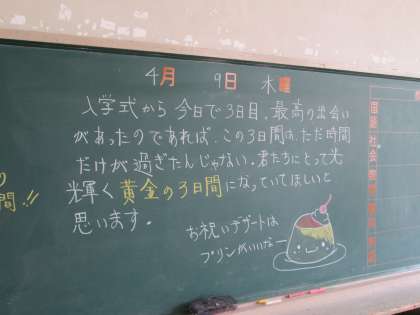 4月 9日 木曜
入学式から今日で3日目。最高の出会い
があったのであれば、この3日間は、ただ時間
だけが過ぎたんじゃない。君たちにとって光
輝く黄金の3日間になっていてほしいと
思います。
お祝いデザートは
プリンがいいな〜
間!!
国語
社会